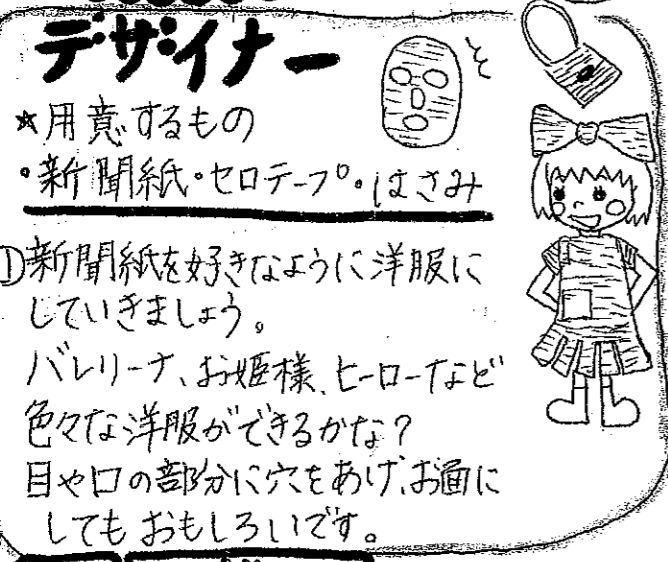 デザイナー
★用意するもの
・新聞紙・セロテープ・はさみ
①新聞紙を好きなように洋服に
していきましょう。
バレリーナ、お姫様、ヒーローなど
色々な洋服ができるかな？
目や口の部分に穴をあけ、お面に
してもおもしろいです。